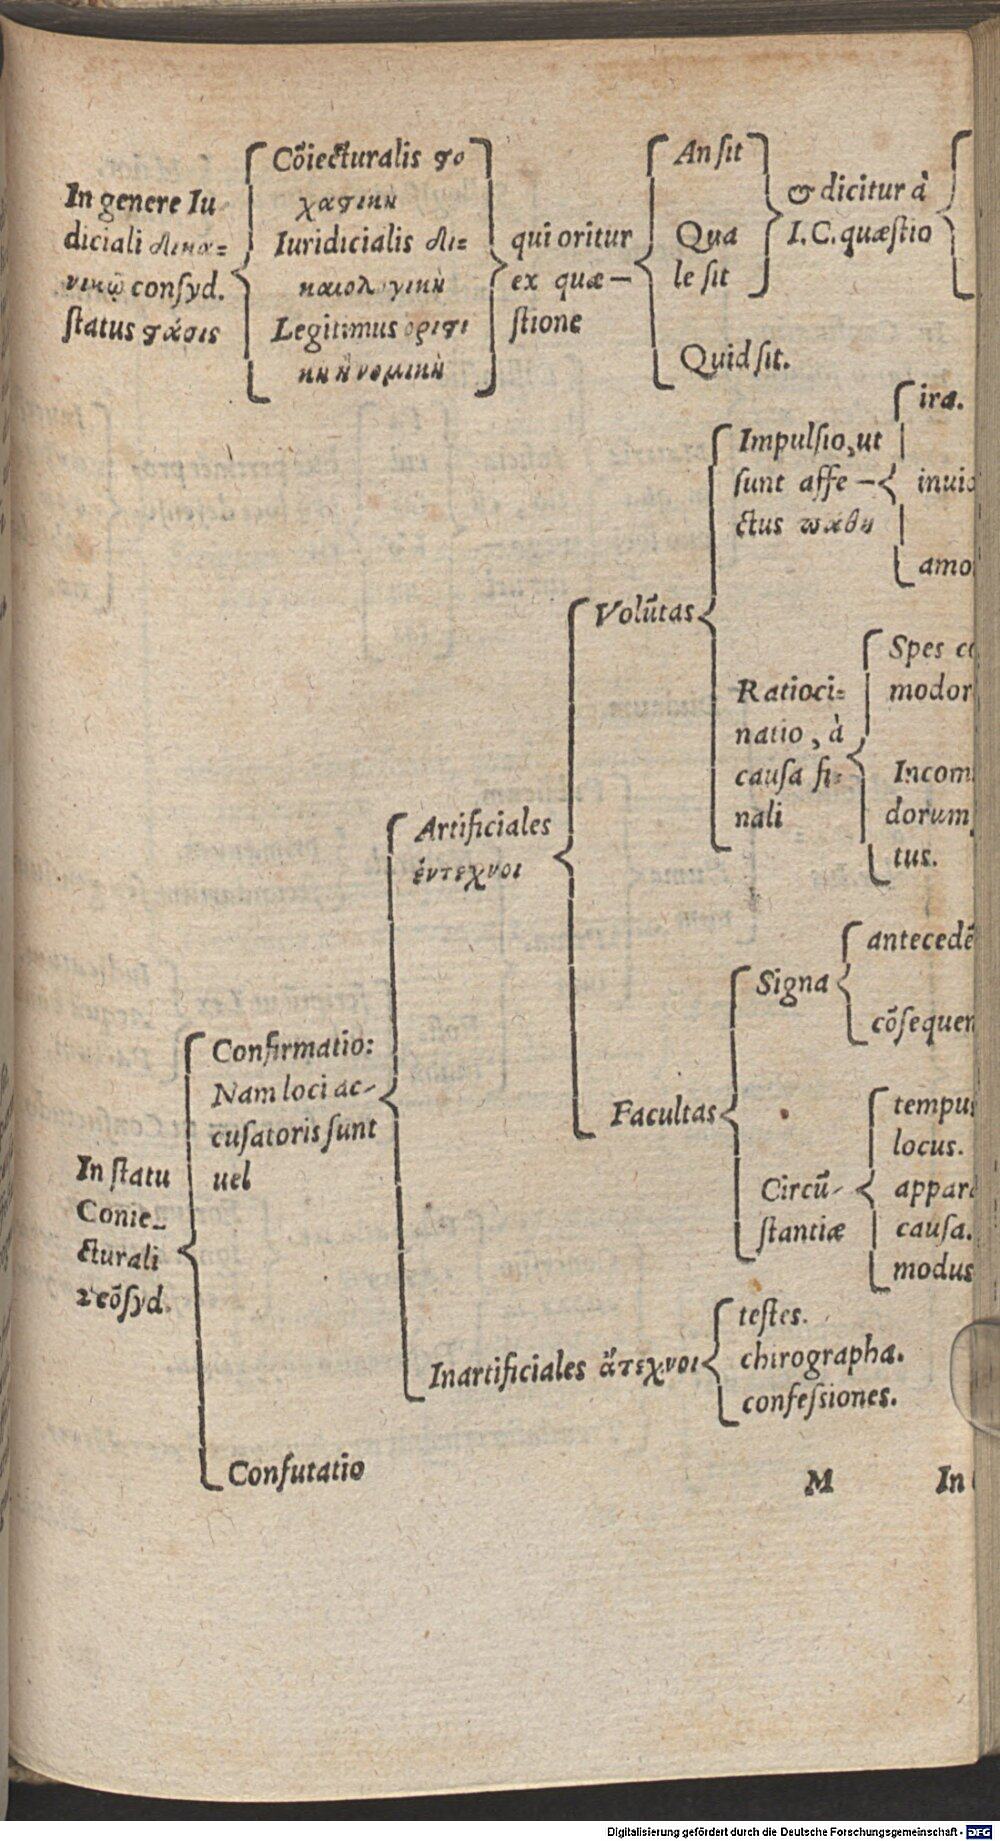 In genere Iu-
diciali δικα=
νικῷ consyd.
status στάσις
Cõiecturalis στο
χαστικὴ
Iuridicialis δι=
καιολογικὴ
Legitimus ὁριστι
κὴ ἢ νομικὴ
qui oritur
ex quæ—
stione
An sit
Qua
le sit
Quid sit.
& dicitur à
I.C. quæstio
In statu
Conie-
cturali
2 cõsyd.
Confirmatio:
Nam loci ac-
cusatoris sunt
uel
Artificiales
ἔντεχνοι
Volũtas
Impulsio, ut
sunt affe—
ctus πάθη
iræ.
amo
Ratioci=
natio, à
causa fi=
nali
Spes co
modor
Incom
dorum
tus.
Facultas
Signa
antecedẽ
cõsequen
Circũ-
stantiæ
tempus
locus.
appara
causa.
modus
Inartificiales ἄτεχνοι
testes.
chirographa.
confessiones.
Confutatio
M In
Digitalisierung gefördert durch die Deutsche Forschungsgemeinschaft - DFG